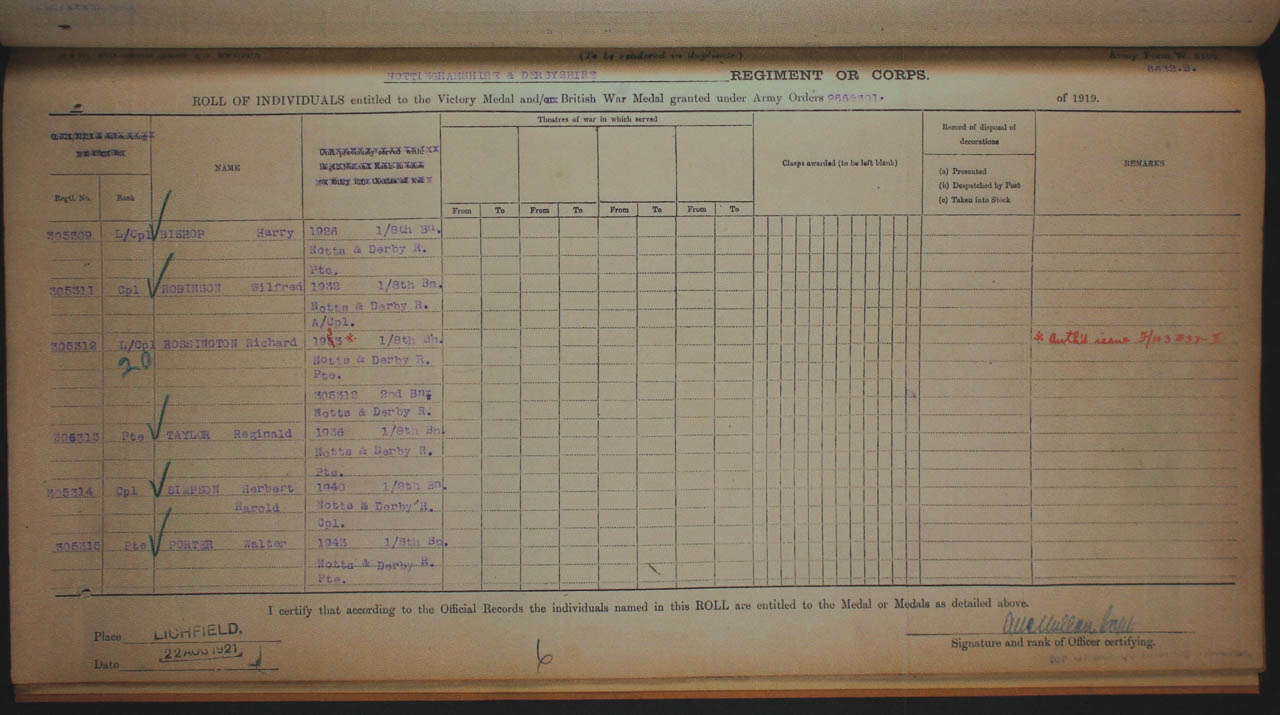 (To be rendered in duplicate)
Army Form W.
6632.B.
NOTTINGHAMSHIRE & DERBYSHIRE REGIMENT OR CORPS.
ROLL OF INDIVIDUALS entitled to the Victory Medal and/or British War Medal granted under Army Orders of 1919.
Theatres of war in which served
Record of disposal of decorations
NAME
Clasps awarded (to be left blank)
REMARKS
(a) Presented
(b) Despatched by Post
(c) Taken into Stock
Regtl. No. Rank
From To From To From To From To
305309 L/Cpl BISHOP Harry 1926 1/8th Bn.
Notts & Derby R.
Pte.
305311 Cpl ROBINSON Wilfred 1932 1/8th Bn.
Notts & Derby R.
A/Cpl.
305312 L/Cpl ROSSINGTON Richard 1/8th Bn. * auth'y issue
20
Notts & Derby R.
Pte.
305312 2nd Bn.
Notts & Derby R.
305313 Pte TAYLOR Reginald 1936 1/8th Bn.
Notts & Derby R.
Pte.
305314 Cpl SIMPSON Herbert 1940 1/8th Bn.
Harold Notts & Derby R.
Cpl.
305315 Pte PORTER Walter 1943 1/8th Bn.
Notts & Derby R.
Pte.
I certify that according to the Official Records the individuals named in this ROLL are entitled to the Medal or Medals as detailed above.
Place LICHFIELD.
Signature and rank of Officer certifying.
Date 22 AUG 1921
6